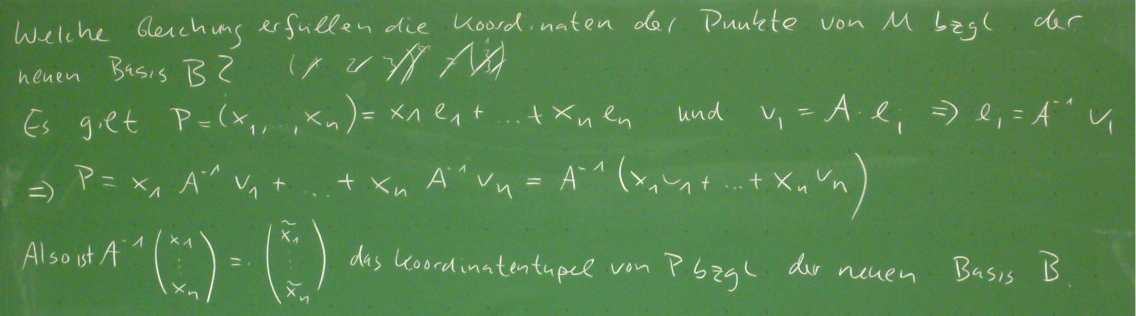 Welche Gleichung erfüllen die Koordinaten der Punkte von M bzgl der
neuen Basis B?
Es gilt P=(x₁,...,xₙ)= x₁ e₁+ ... + xₙ eₙ und vᵢ = A · eᵢ ⇒ eᵢ = A⁻¹ vᵢ
⇒ P = x₁ A⁻¹ v₁ + ... + xₙ A⁻¹ vₙ = A⁻¹ (x₁v₁ + ... + xₙvₙ)
Also ist A⁻¹ (x₁ ⋮ xₙ) = (x̃₁ ⋮ x̃ₙ) das Koordinatentupel von P bzgl der neuen Basis B.